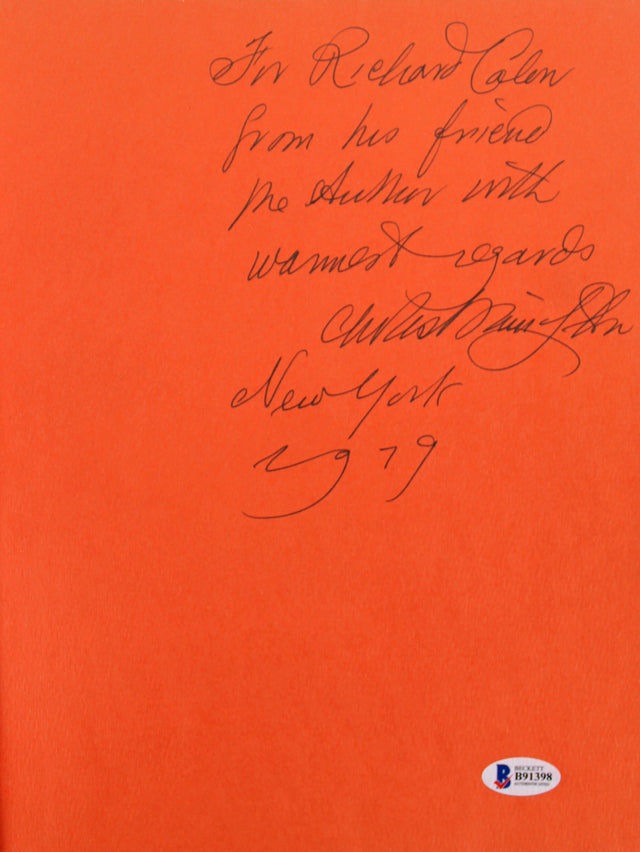 For Richard Colon
from his friend
the Author with
warmest regards
New York
1979
BECKETT
B91398
AUTHENTICATION